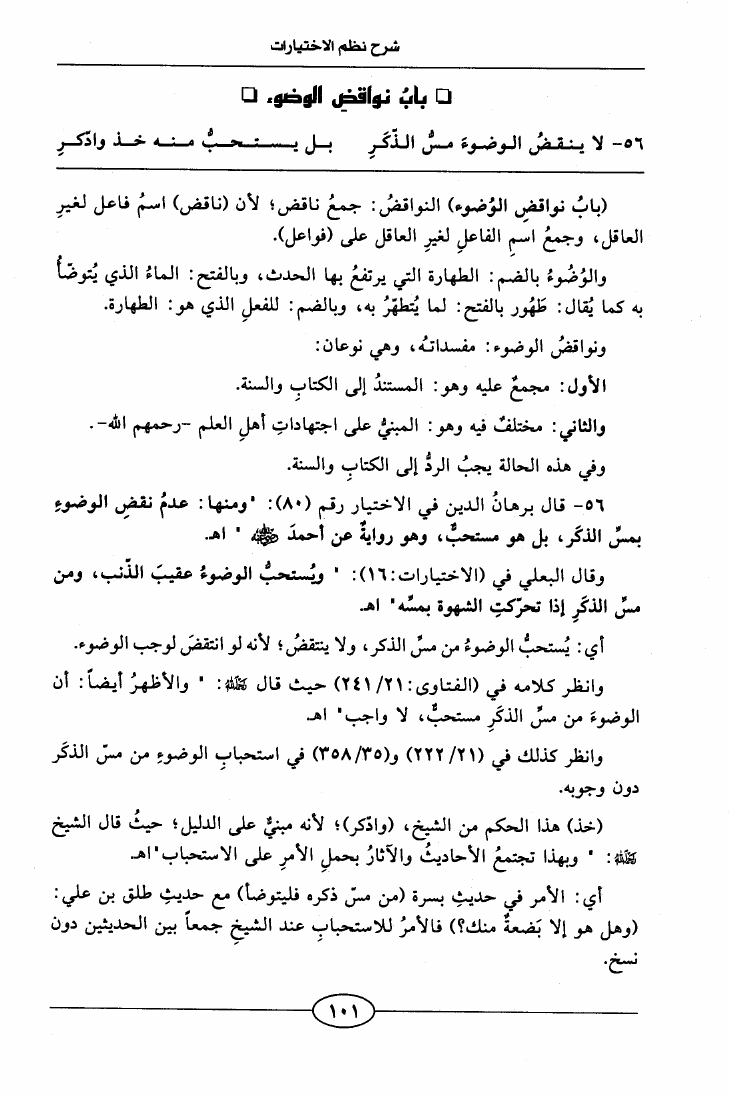 شرح نظم الاختيارات
□ بابُ نواقضِ الوضوء □
٥٦- لا ينقضُ الوضوءَ مسُّ الذّكَرِ بل يستحبُّ منه خذ واذكرِ
(بابُ نواقضِ الوُضوء) النواقضُ: جمعُ ناقض؛ لأن (ناقض) اسمُ فاعل لغيرِ
العاقل، وجمعُ اسمِ الفاعلِ لغيرِ العاقل على (فواعل).
والوُضُوءُ بالضم: الطهارة التي يرتفعُ بها الحدث، وبالفتح: الماءُ الذي يُتوضّأُ
به كما يُقال: طَهُور بالفتح: لما يُتطهّرُ به، وبالضم: للفعلِ الذي هو: الطهارة.
ونواقضُ الوضوء: مفسداتهُ، وهي نوعان:
الأول: مجمعٌ عليه وهو: المستندُ إلى الكتابِ والسنة.
والثاني: مختلفٌ فيه وهو: المبنيُّ على اجتهاداتِ أهلِ العلم -رحمهم الله-.
وفي هذه الحالة يجبُ الردُّ إلى الكتابِ والسنة.
٥٦- قال برهانُ الدين في الاختيار رقم (٨٠): "ومنها: عدمُ نقضِ الوضوءِ
بمسِّ الذكَر، بل هو مستحبٌّ، وهو روايةٌ عن أحمدَ ﷺ " اهـ.
وقال البعلي في (الاختيارات:١٦): " ويُستحبُّ الوضوءُ عقيبَ الذّنب، ومن
مسِّ الذكَرِ إذا تحرّكتِ الشهوة بمسِّه" اهـ.
أي: يُستحبُّ الوضوءُ من مسِّ الذكر، ولا ينتقضُ؛ لأنه لو انتقضَ لوجب الوضوء.
وانظر كلامه في (الفتاوى:٢١/ ٢٤١) حيث قال رحمه الله: " والأظهرُ أيضاً: أن
الوضوءَ من مسِّ الذكَرِ مستحبٌّ، لا واجب" اهـ
وانظر كذلك في (٢١/ ٢٢٢) و(٣٥/ ٣٥٨) في استحبابِ الوضوءِ من مسّ الذكَر
دون وجوبه.
(خذ) هذا الحكم من الشيخ، (واذكر)؛ لأنه مبنيٌّ على الدليل؛ حيثُ قال الشيخ
رحمه الله: " وبهذا تجتمعُ الأحاديثُ والآثارُ بحملِ الأمرِ على الاستحباب"اهـ.
أي: الأمر في حديثِ بسرة (من مسّ ذكره فليتوضأ) مع حديثِ طلق بن علي:
(وهل هو إلا بَضعةٌ منك؟) فالأمرُ للاستحبابِ عند الشيخِ جمعاً بين الحديثين دون
نسخ.
١٠١